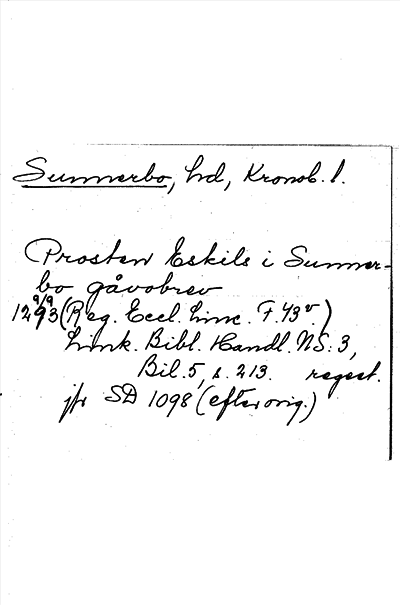 Sunnerbo, hd, Kronob. l.
Prosten Eskils i Sunner-
bo gåvobrev
12 9/9 93 (Reg. Eccl. Linc. F. 43v.)
Link. Bibl. Handl. NS: 3,
Bil. 5, s. 213. regest.
jfr SD 1098 (efter orig.)